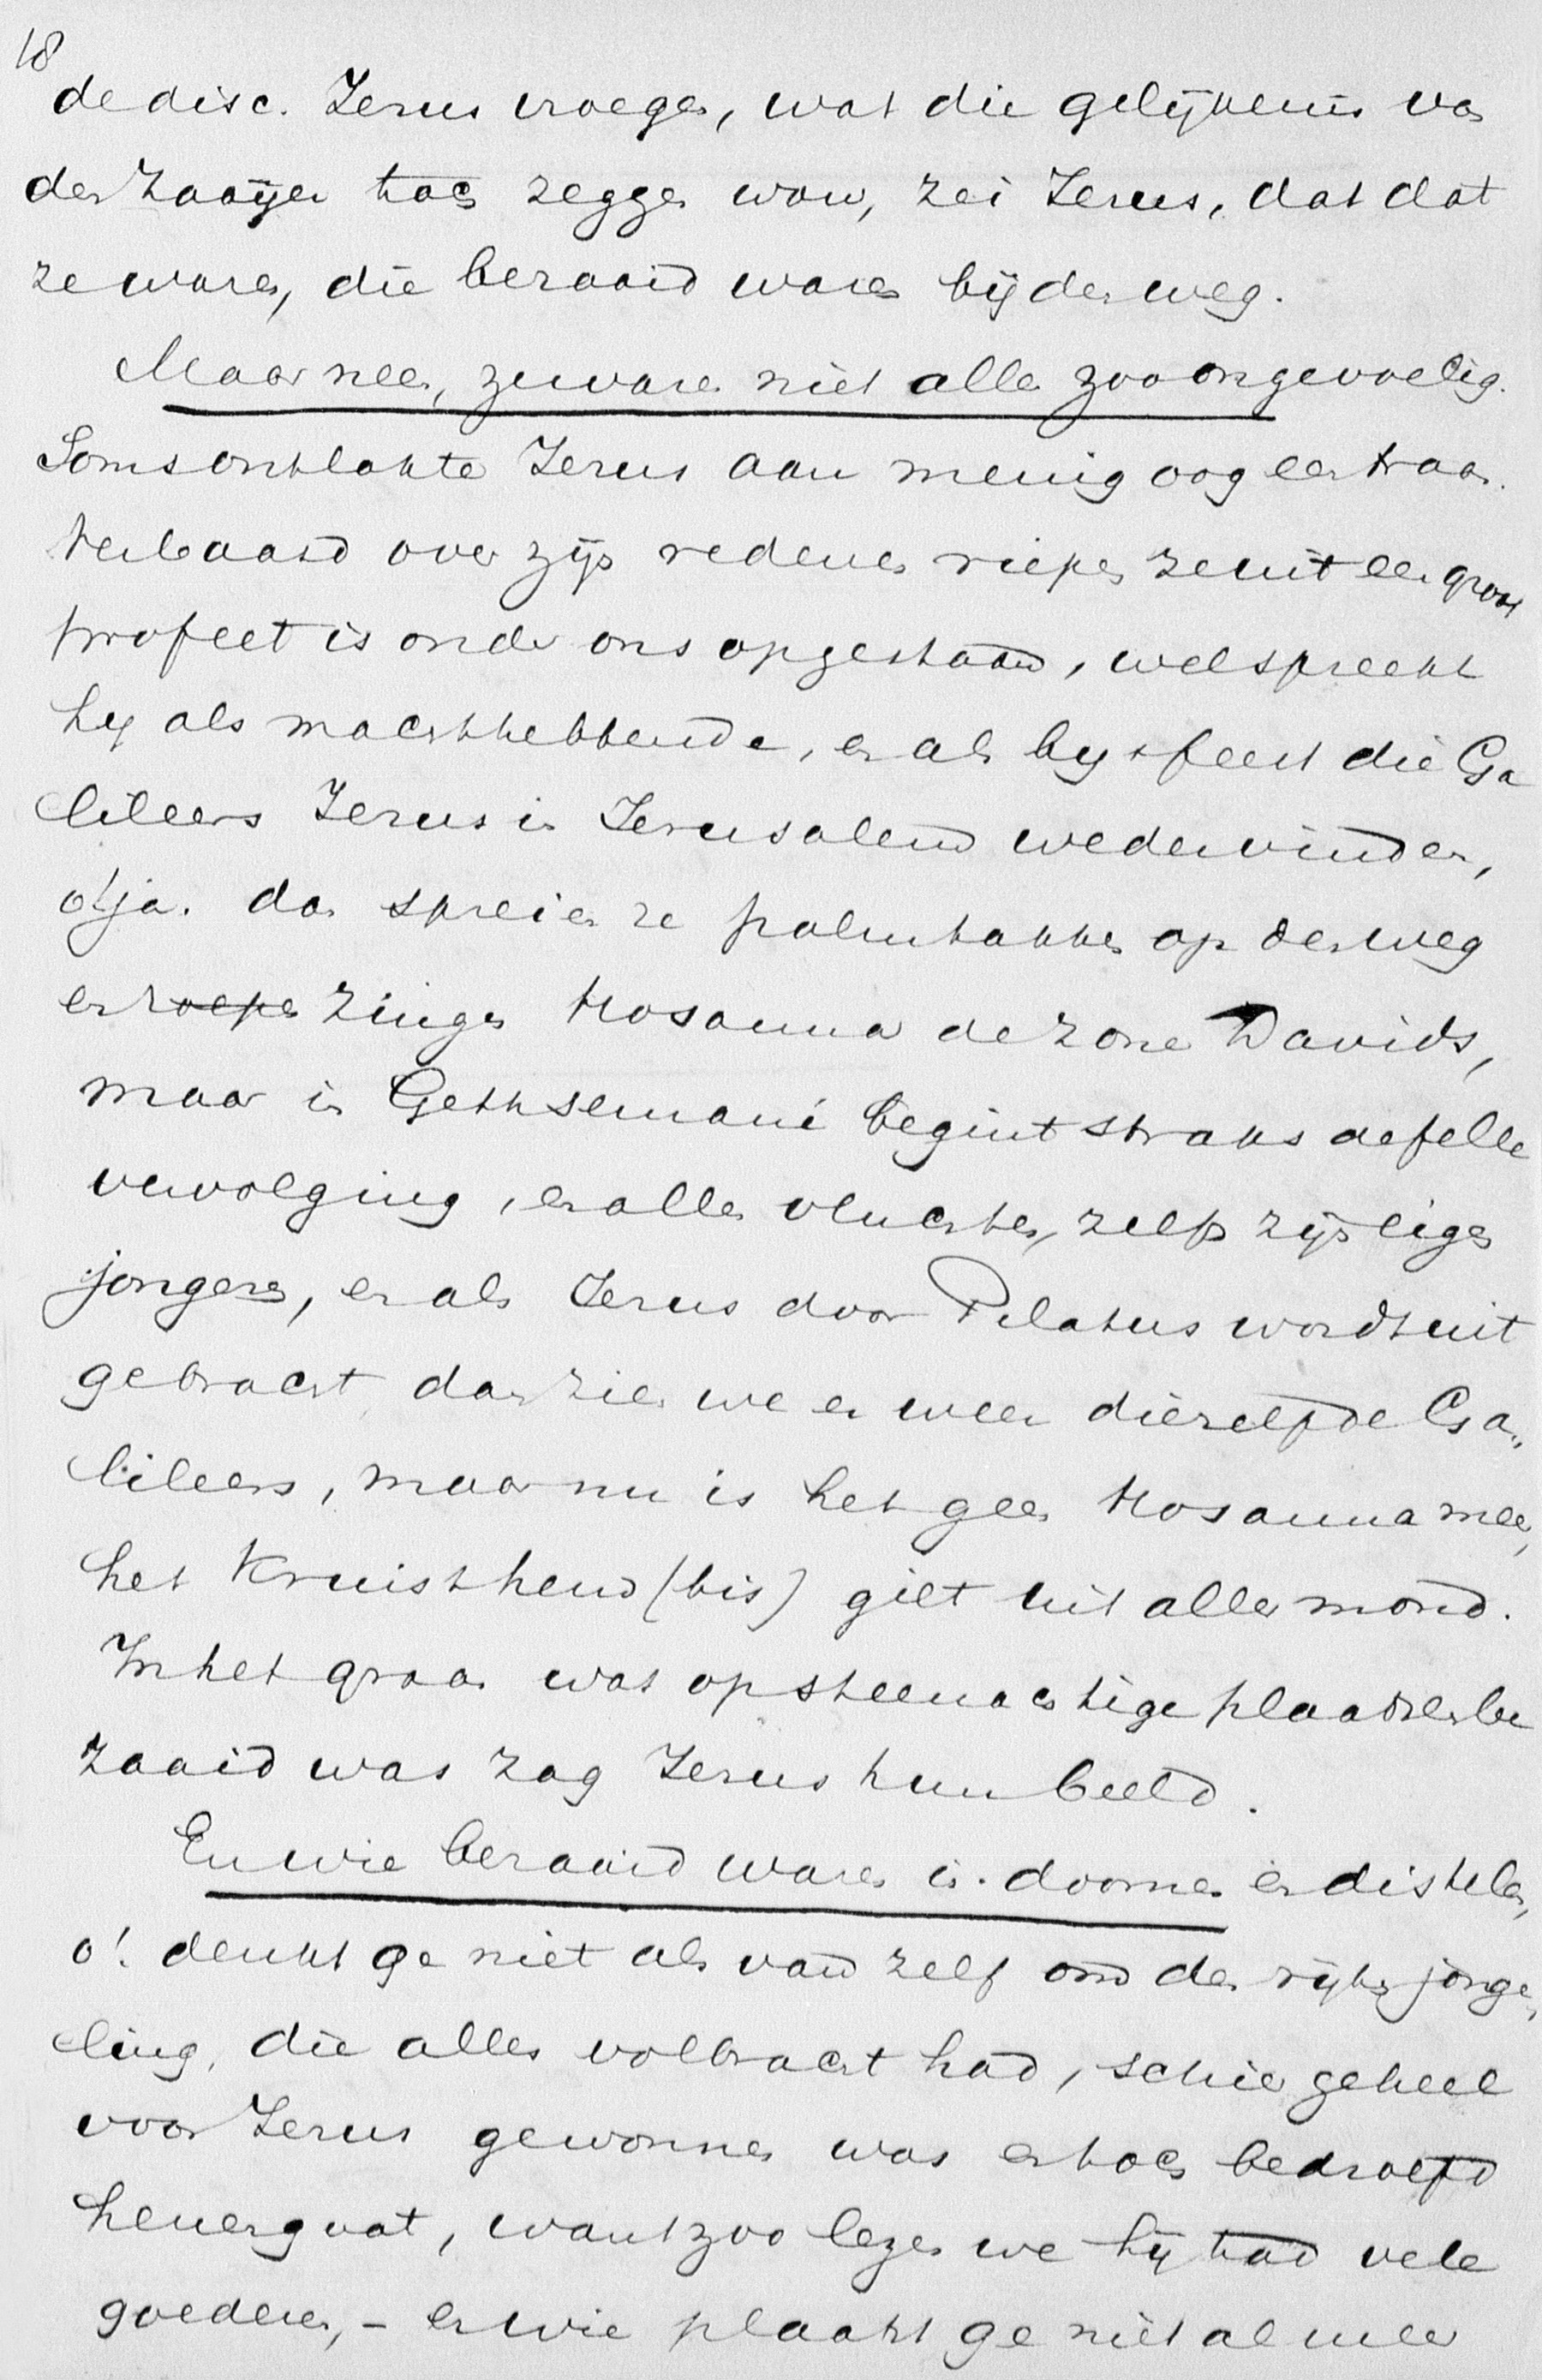 18
de disc. Jezus vroegen, wat die gelijkenis van
den zaaijer toch zeggen wou, zei Jezus, dat dat
ze waren, die bezaaid waren bij den weg.
Maar neen, ze waren niet allen zoo ongevoelig.
Soms ontlokte Jezus aan menig oog een traan.
Verbaasd over zijn redenen riepen ze uit een groot
profeet is onder ons opgestaan, wel spreekt
hij als machthebbende, en als bij 't feest die Ga
lileers Jezus in Jerusalem wedervinden,
o! ja. dan spreien ze palmtakken op den weg
en roepen zingen Hosanna de zone Davids,
maar in Gethsemané begint straks de felle
vervolging, en allen vluchten, zelfs zijn eigen
jongeren, en als Jezus door Pilatus wordt uit
gebracht dan zien we er weer diezelfde Ga„
lileers, maar nu is het geen Hosanna meer,
het Kruist hem (bis) gilt uit aller mond.
In het graan wat op steenachtige plaatsen be
zaaid was zag Jezus hun beeld.
En wie bezaaid waren in doornen en distelen,
o! denkt ge niet als van zelf om den rijken jonge„
ling, die alles volbracht had, schier geheel
voor Jezus gewonnen was en toch bedroefd
henengaat, want zoo lezen we hij had vele
goederen, - en wie plaatst ge niet al meer